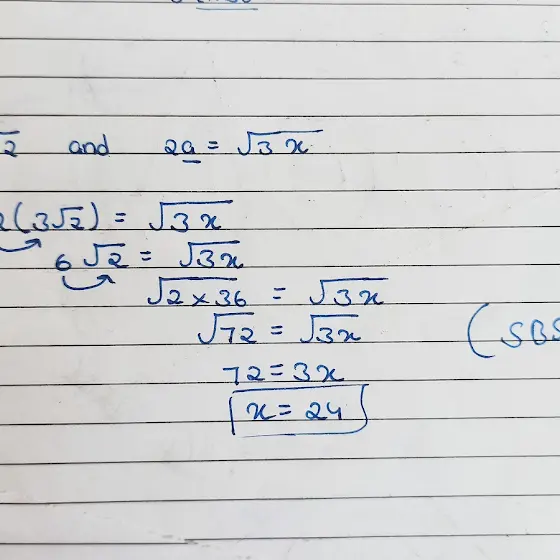 √2 and 2a = √3x
2(3√2) = √3x
6√2 = √3x
√2×36 = √3x
√72 = √3x (SBS
72 = 3x
x = 24